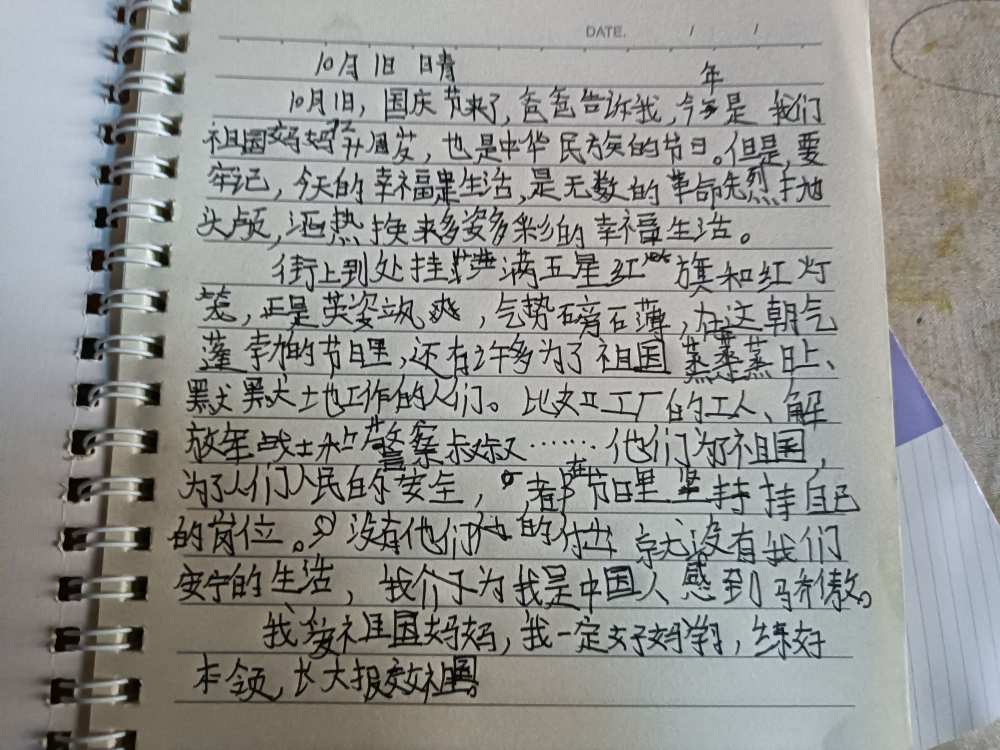 DATE. / /
10月1日 晴
年
10月1日，国庆节来了，爸爸告诉我，今是我们
祖国妈妈岁，也是中华民族的节日。但是，要
牢记，今天的幸福生活，是无数的革命先烈抛
头颅，洒热换来多姿多彩的幸福生活。
街上到处挂满五星红旗和红灯
笼，正是英姿飒爽，气势磅石薄，在这朝气
蓬勃的节日里，还有许多为了祖国蒸蒸日上、
默默土地工作的人们。比如工厂的工人、解
放军战士和警察叔叔……他们为了祖国，
为了人们人民的安全，都在节日里坚持持自己
的岗位。没有他们的付出就没有我们
安宁的生活，我们为我是中国人感到骄傲。
我爱祖国妈妈，我一定好好学习，练好
本领，长大报效祖国。